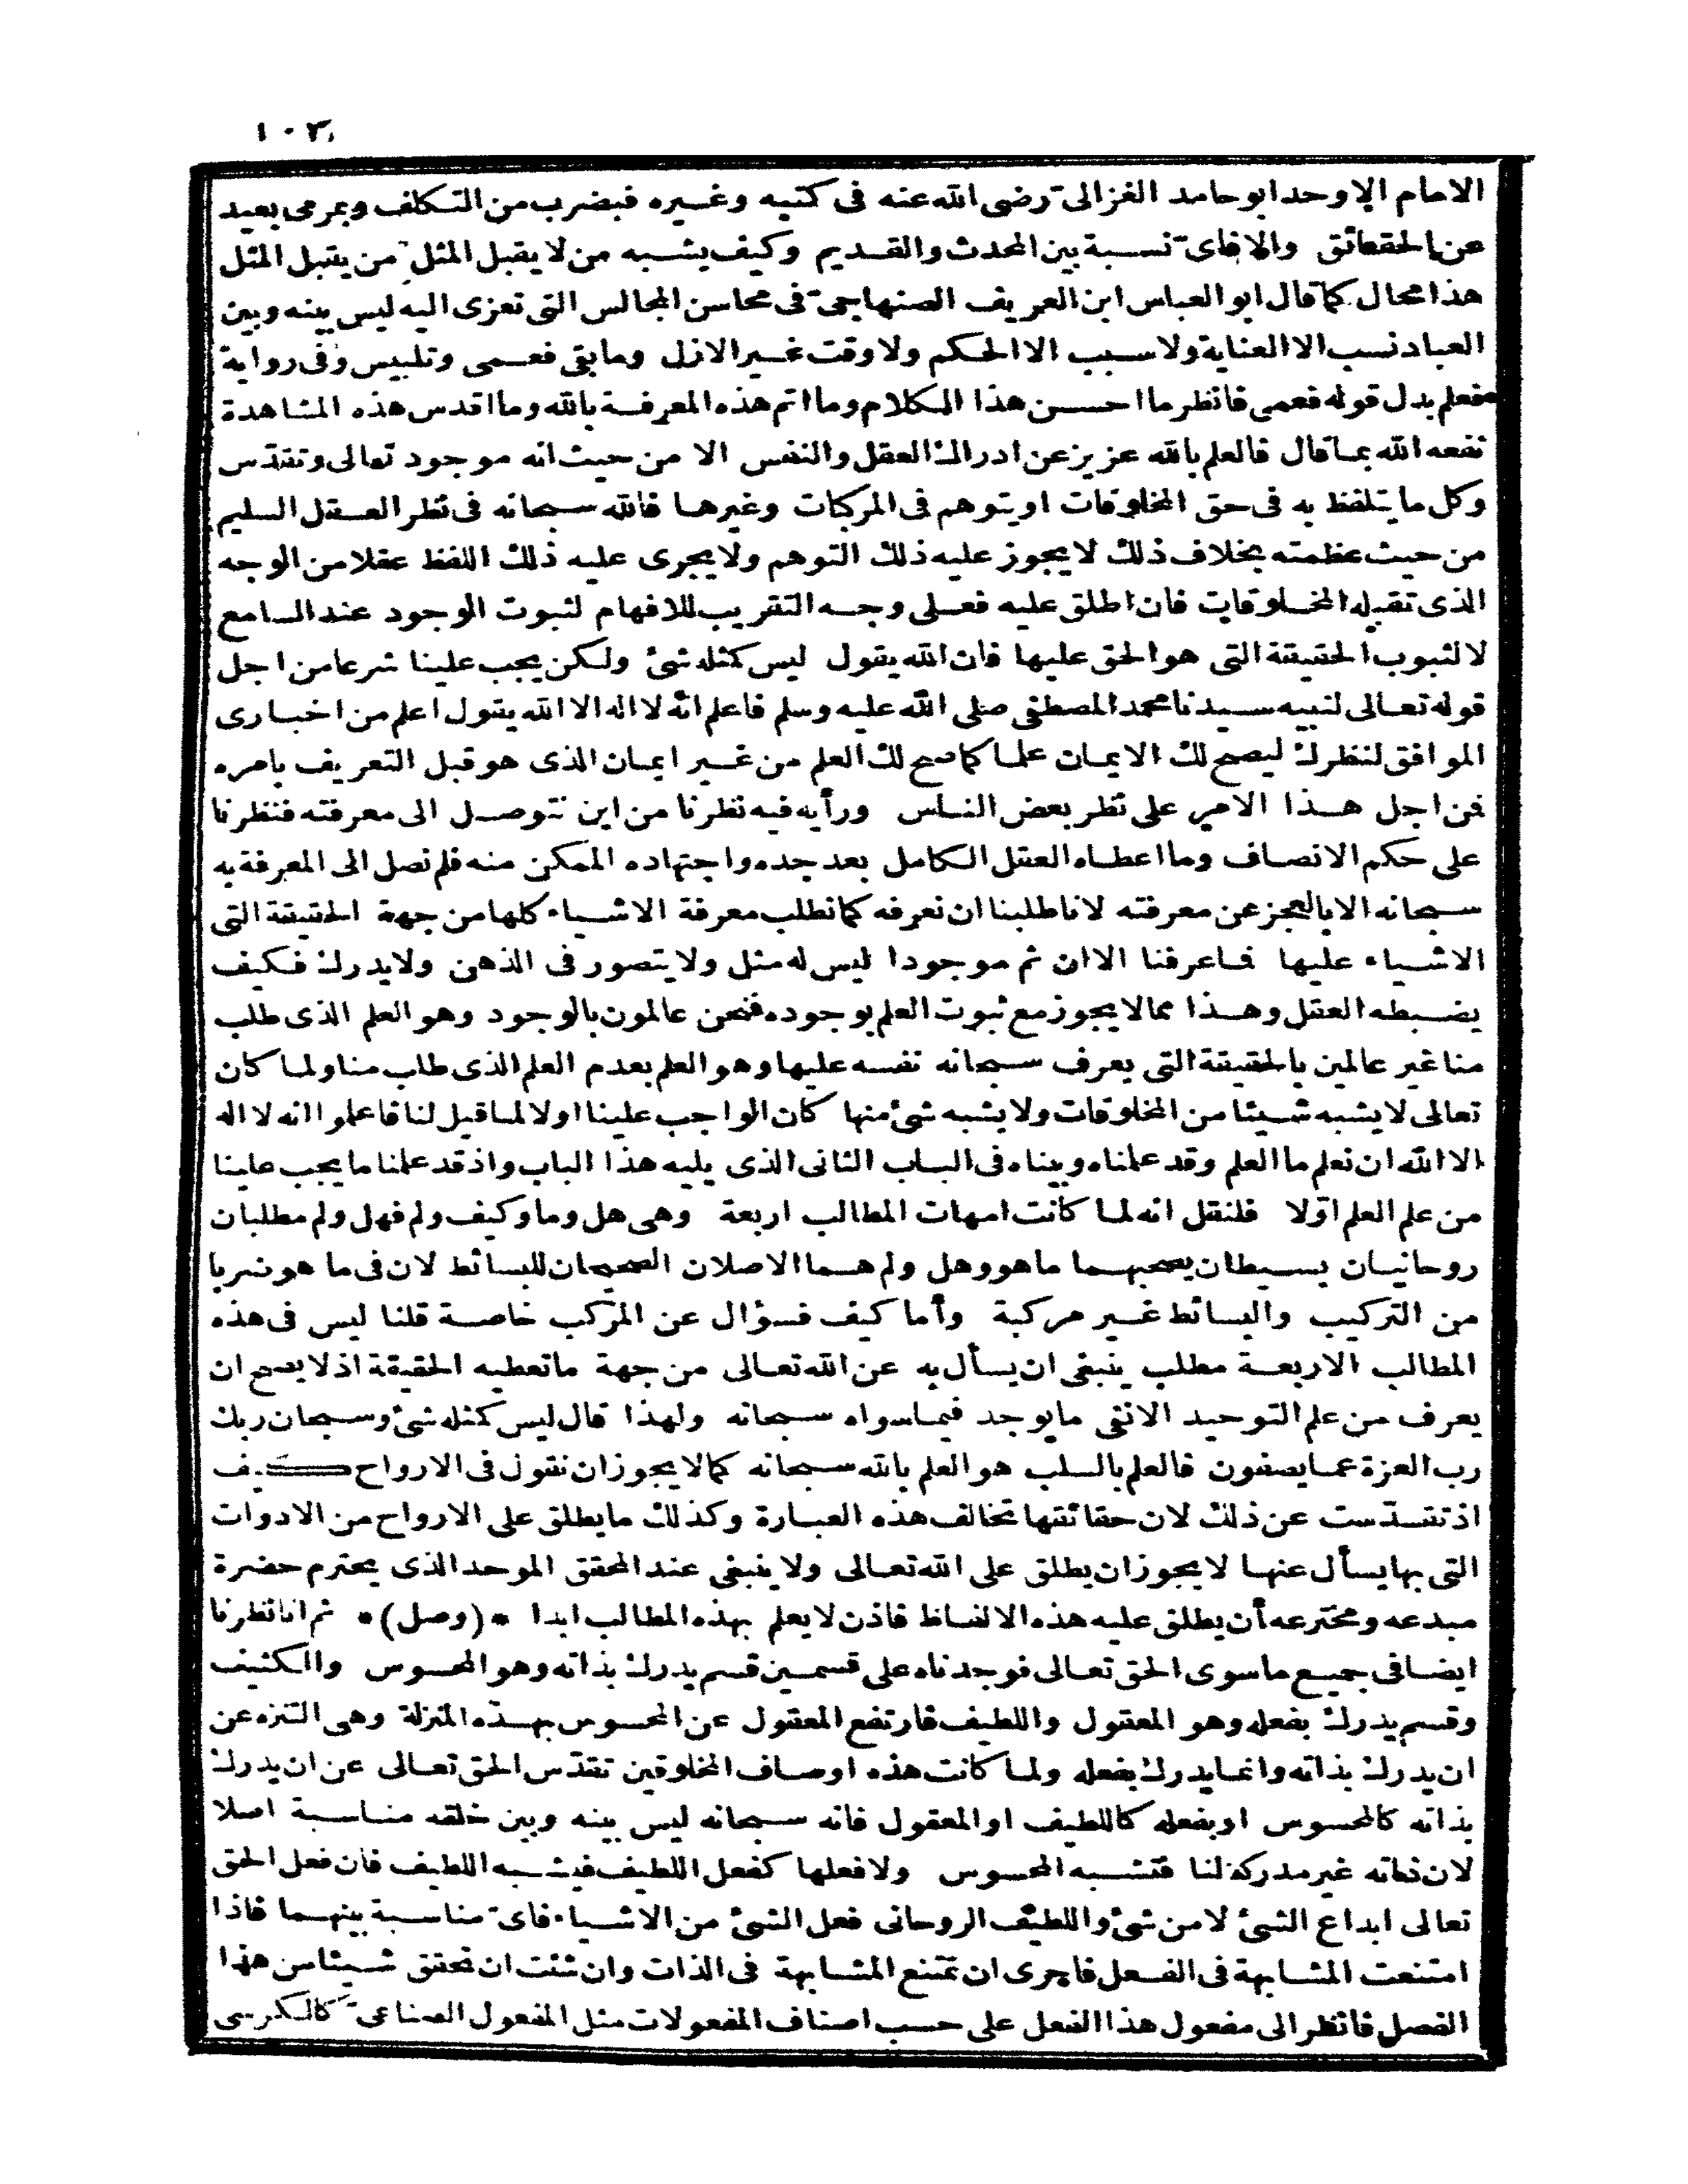 ١٠٣
الامام الاوحد ابو حامد الغزالى رضى الله عنه فى كتبه وغيره فبضرب من التكلف وبمرمى بعيد
عن الحقائق والا فاى نسبة بين المحدث والقديم وكيف يشبه من لا يقبل المثل من يقبل المثل
هذا محال كما قال ابو العباس ابن العريف الصنهاجى فى محاسن المجالس التى تعزى اليه ليس بينه وبين
العباد نسب الا العناية ولا سبب الا الحكم ولا وقت غير الازل وما بقى فعمى وتلبيس وفى رواية
فعلم بدل قوله فعمى فانظر ما احسن هذا الكلام وما اتم هذه المعرفة بالله وما اقدس هذه المشاهدة
نفعه الله بما قال فالعلم بالله عزيز عن ادراك العقل والنفس الا من حيث انه موجود تعالى وتقدّس
وكل ما يتلفظ به فى حق المخلوقات او يتوهم فى المركبات وغيرها فالله سبحانه فى نظر العقل السليم
من حيث عظمته بخلاف ذلك لا يجوز عليه ذلك التوهم ولا يجرى عليه ذلك اللفظ عقلا من الوجه
الذى تقبله المخلوقات فان اطلق عليه فعلى وجه التقريب للافهام لثبوت الوجود عند السامع
لا لثبوب الحقيقة التى هو الحق عليها فان الله يقول ليس كمثله شئ ولكن يجب علينا شرعا من اجل
قوله تعالى لنبيه سيدنا محمد المصطفى صلى الله عليه وسلم فاعلم انه لا اله الا الله يقول اعلم من اخبارى
الموافق لنظرك ليصح لك الايمان علما كما صح لك العلم من غير ايمان الذى هو قبل التعريف بامره
فمن اجل هذا الامر على نظر بعض الناس ورأيه فيه نظرنا من اين نتوصل الى معرفته فنظرنا
على حكم الانصاف وما اعطاه العقل الكامل بعد جده واجتهاده الممكن منه فلم نصل الى المعرفة به
سبحانه الا بالعجز عن معرفته لانا طلبنا ان نعرفه كما نطلب معرفة الاشياء كلها من جهة الحقيقة التى
الاشياء عليها فما عرفنا الا ان ثم موجودا ليس له مثل ولا يتصور فى الذهن ولا يدرك فكيف
يضبطه العقل وهذا مما لا يجوز مع ثبوت العلم بوجوده فنحن عالمون بالوجود وهو العلم الذى طلب
منا غير عالمين بالحقيقة التى يعرف سبحانه نفسه عليها وهو العلم بعدم العلم الذى طلب منا ولما كان
تعالى لا يشبه شيئا من المخلوقات ولا يشبه شئ منها كان الواجب علينا اولا لما قيل لنا فاعلموا انه لا اله
الا الله ان نعلم ما العلم وقد علمناه وبيناه فى الباب الثانى الذى يليه هذا الباب واذ قد علمنا ما يجب علينا
من علم العلم اوّلا فلنقل انه لما كانت امهات المطالب اربعة وهى هل وما وكيف ولم فهل ولم مطلبان
روحانيان بسيطان يصحبهما ما هو وهل ولم هما الاصلان الصحيحان للبسائط لان فى ما هو ضربا
من التركيب والبسائط غير مركبة وأما كيف فسؤال عن المركب خاصة قلنا ليس فى هذه
المطالب الاربعة مطلب ينبغى ان يسأل به عن الله تعالى من جهة ما تعطيه الحقيقة اذ لا يصح ان
يعرف من علم التوحيد الا نفى ما يوجد فيما سواه سبحانه ولهذا قال ليس كمثله شئ وسبحان ربك
رب العزة عما يصفون فالعلم بالسلب هو العلم بالله سبحانه كما لا يجوز ان نقول فى الارواح كيف
اذ تقدّست عن ذلك لان حقائقها تخالف هذه العبارة وكذلك ما يطلق على الارواح من الادوات
التى بها يسأل عنها لا يجوز ان يطلق على الله تعالى ولا ينبغى عند المحقق الموحد الذى يحترم حضرة
مبدعه ومخترعه أن يطلق عليه هذه الالفاظ فاذن لا يعلم بهذه المطالب ابدا * (وصل) * ثم انا نظرنا
ايضا فى جميع ما سوى الحق تعالى فوجدناه على قسمين قسم يدرك بذاته وهو المحسوس والكثيف
وقسم يدرك بفعله وهو المعقول واللطيف فارتفع المعقول عن المحسوس بهذه المنزلة وهى التنزه عن
ان يدرك بذاته وانما يدرك بفعله ولما كانت هذه اوصاف المخلوقين تقدّس الحق تعالى عن ان يدرك
بذاته كالمحسوس او بفعله كاللطيف او المعقول فانه سبحانه ليس بينه وبين خلقه مناسبة اصلا
لان ذاته غير مدركة لنا فتشبه المحسوس ولا فعلها كفعل اللطيف فيشبه اللطيف فان فعل الحق
تعالى ابداع الشئ لا من شئ واللطيف الروحانى فعل الشئ من الاشياء فاى مناسبة بينهما فاذا
امتنعت المشابهة فى الفعل فاحرى ان تمتنع المشابهة فى الذات وان شئت ان تحقق شيئا من هذا
الفصل فانظر الى مفعول هذا الفعل على حسب اصناف المفعولات مثل المفعول الصناعى كالكرسى